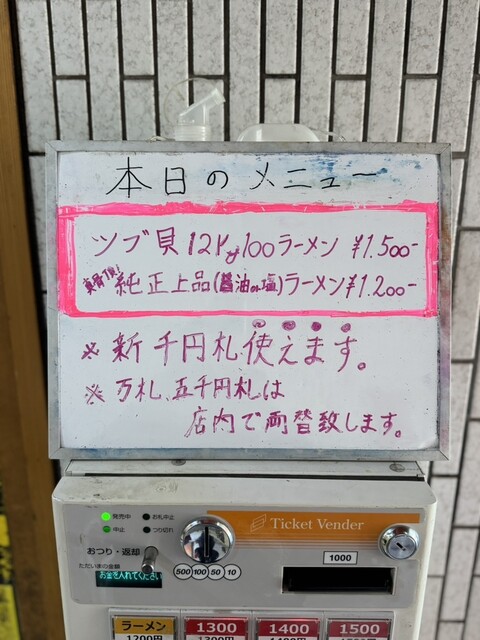 本日のメニュー
ツブ貝12kg100ラーメン ¥1.500-
真骨頂!
純正上品(醤油or塩)ラーメン¥1.200-
※新千円札使えます。
※万札、五千円札は
店内で両替致します。
発売中
お札中止
中止
つり切れ
おつり・返却
ただいまの金額
お金を入れてください
500 100 50 10
Ticket Vender
1000
ラーメン 1300 1400 1500
1200円